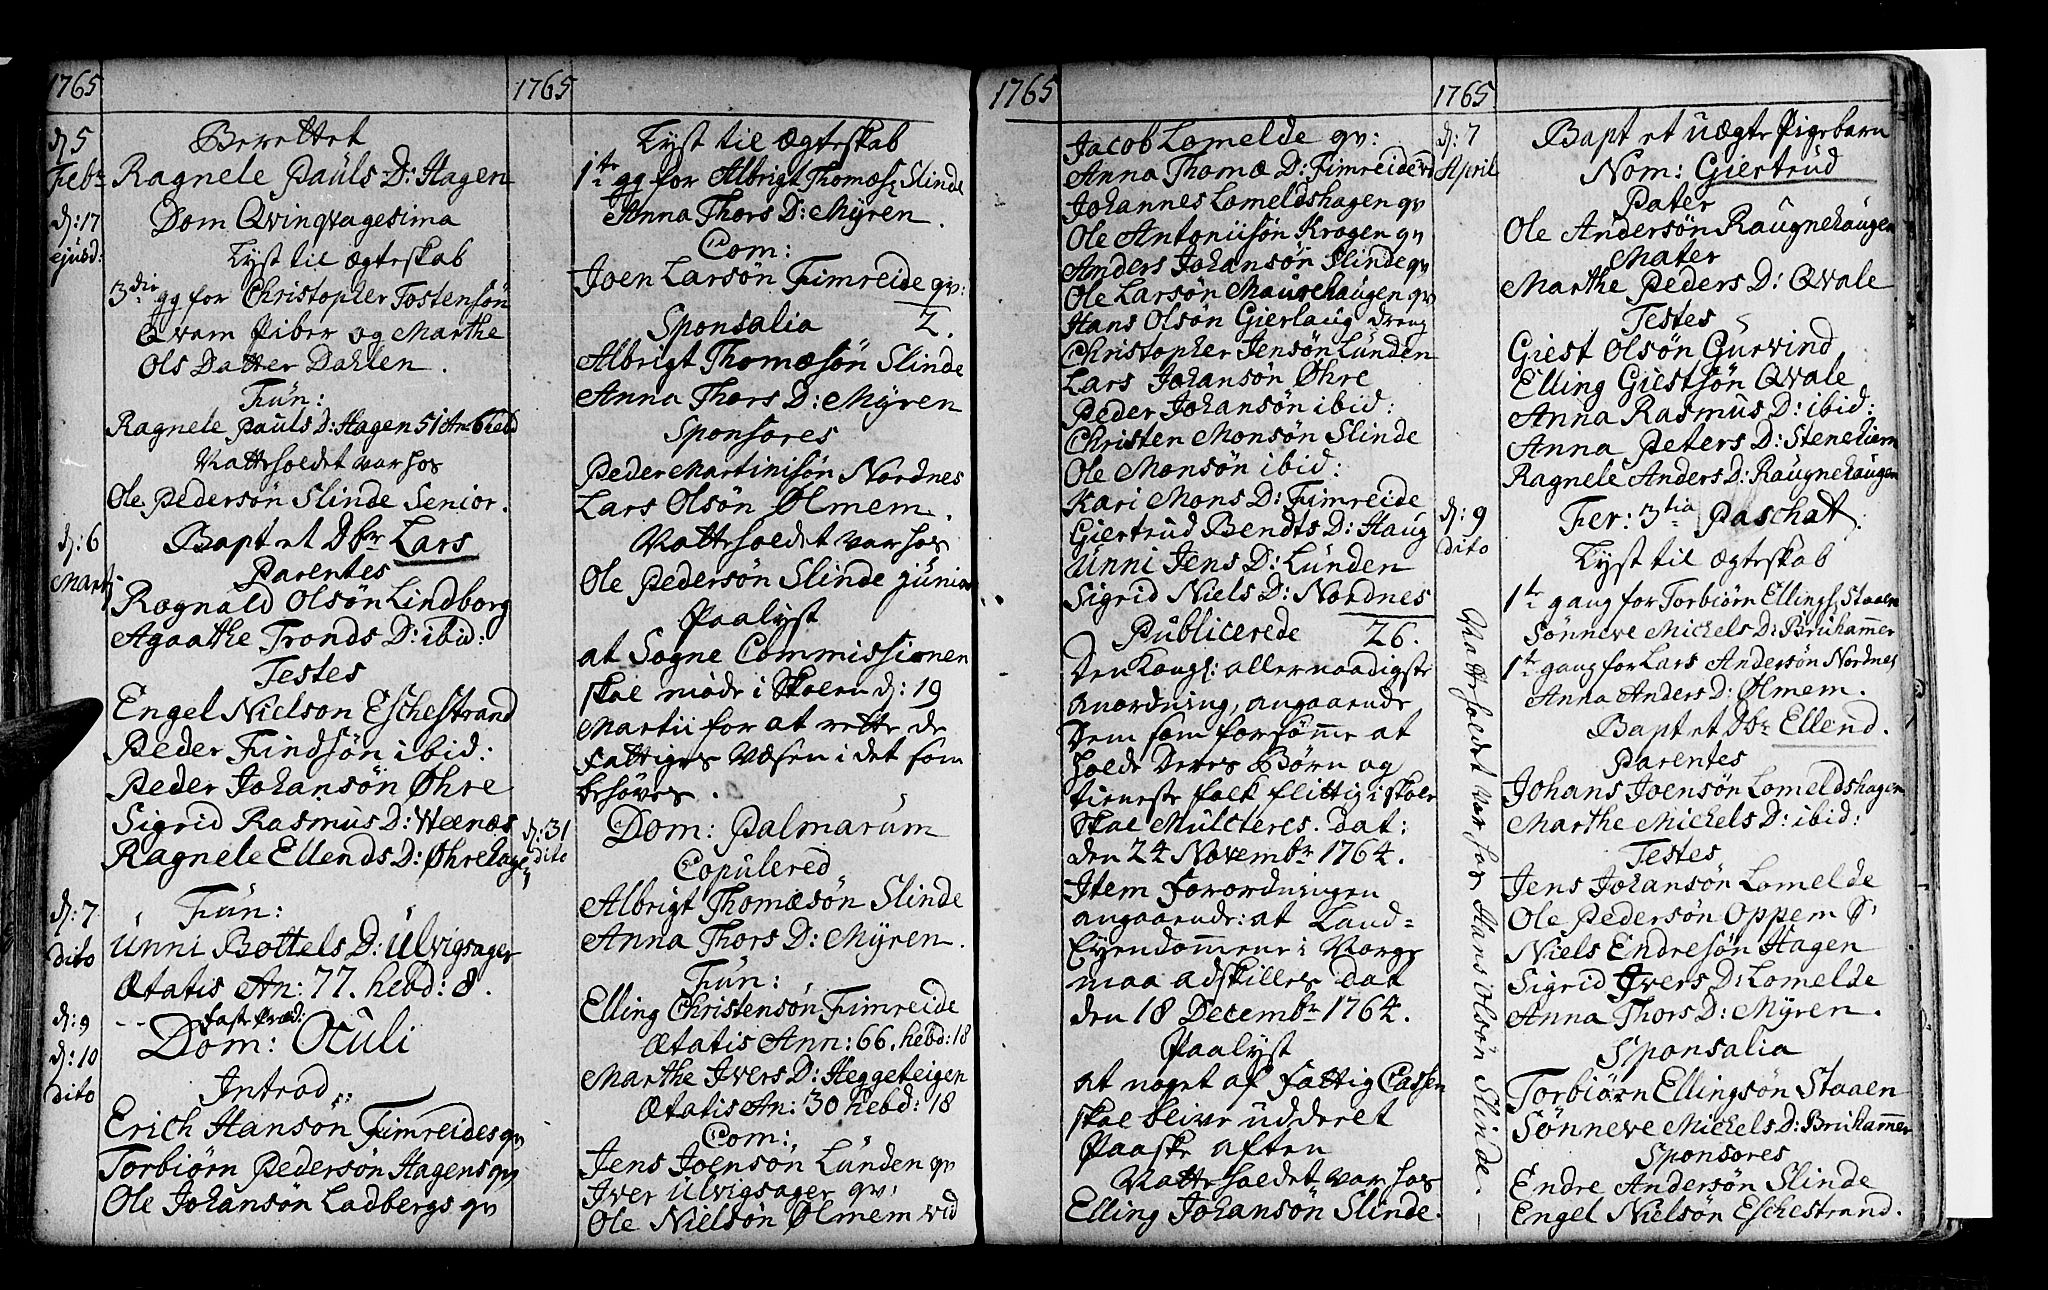 1765
d: 5 Febr
Berettet
Ragnele Pauls D: Hagen
d: 17 ejusd:
Dom Qvinqvagesima
Lyst til Ægteskab
3die gg for Christopher Tostensön
Qvam Piber og Marthe
Ols Datter Dahlen.
Fün:
Ragnele Pauls D: Hagen 51 An 6 hebd
Natteholdet var hos
Ole Pedersön Slinde Senior.
d: 6 Martj
Bapt et Dbr Lars
Parentes
Ragnald Olsön Lindborg
Agaathe Tronds D: ibid:
Testes
Engel Nielson Eschestrand
Peder Findsön ibid:
Peder Johansön Øhre
Sigrid Rasmus D: Weenæs
Ragnele Ellends D: Øhrehagen
d: 7 dito
Fün:
Unni Bottels D: Ulvigsager
Ætatis An: 77. hebd: 8.
d: 9
-- faste præd:
d: 10 dito
Dom: Oculi
Introd.:
Erich Hansön Fimreides qv
Torbiörn Pedersön Hagens qv
Ole Johansön Ladbergs qv
1765
Lyst til Ægteskab
1te gg for Albrigt Thomæs: Slinde
Anna Thors D: Myren.
Com:
Joen Larsön Fimreide qv:
Sponsalia 2.
Albrigt Thomæsön Slinde
Anna Thors D: Myren
Sponsores
Peder Martinisön Nordnes
Lars Olsön Ølmem.
Natteholdet var hos
Ole Pedersön Slinde junior
Paalyst
at Sogne Commissionen
skal møde i Skolen d: 19
Martii for at rette de
Fattiges Væsen i det som
behöves.
d: 31 dito
Dom: Palmarum
Copulered
Albrigt Thomæsön Slinde
Anna Thors D: Myren.
Fün:
Elling Christensön Fimreide
Ætatis Ann: 66. hebd: 18
Marthe Ivers D: Heggeteigen
Ætatis An: 30 hebd: 18
Com:
Jens Joensön Lunden qv
Iver Ulvigsager qv:
Ole Nielsön Ølmem vid
1765
Jacob Lomelde qv:
Anna Thomæ D: Fimreide vid
Johannes Lomeldshagen qv
Ole Antonisön Kragen qv
Anders Johansön Slinde qv
Ole Larsön Maurehaugen qv
Hans Olsön Gierlaug dreng
Christopher Jensön Lunden
Lars Johansön Øhre
Peder Johansön ibid:
Christen Monsön Slinde
Ole Monsön ibid:
Kari Mons D: Fimreide
Giertrud Bendts D: Haug
Unni Jens D: Lunden
Sigrid Niels D: Nordnes
Publicerede 26.
Den Kongl: allernaadigste
Anordning, angaaende
Dem som forsömme at
holde Deres Börn og
tieneste folk flittig i skole
Skal Mulcteres. dat:
den 24 Novembr 1764.
Item Forordningen
angaaende: at Land-
Eyendommene i Norge
maa adskilles dat
den 18 Decembr 1764.
Paalyst
at noget af Fattig Cassen
skal blive udderet
Paaske aften
Natteholdet var hos
Elling Johansön Slinde.
1765
d: 7 April
Bapt et uægte Pigebarn
Nom: Giertrud
Pater
Ole Andersön Raugnehaugen
Mater
Marthe Peders D: Qvale
Testes
Giest Olsön Gurvind
Elling Giestsön Qvale
Anna Rasmus D: ibid:
Anna Peters D: Stenehiem
Ragnele Anders D: Raugnehaugen
d: 9 dito
Fer: 3tia Paschatt:
Lyst til Ægteskab
1te gang for Torbiörn Ellings: Staaen
Sönneve Michels D: Bruhammer
1te gang for Lars Andersön Nordnes
Anna Anders D: Ølmem.
Bapt et Dbr Ellend.
Parentes
Johans Joensön Lomeldshagen
Marthe Michels D: ibid:
Testes
Jens Johansön Lomelde
Ole Pedersön Oppem S:
Niels Endresön Hagen
Sigrid Ivers D: Lomelde
Anna Thors D: Myren.
Sponsalia
Torbiörn Ellingsön Staaen
Sönneve Michels D: Bruhammer
Sponsores
Endre Andersön Slinde
Engel Nielsön Eschestrand.
Natteholdet var hos Hans Olsön Slinde. —